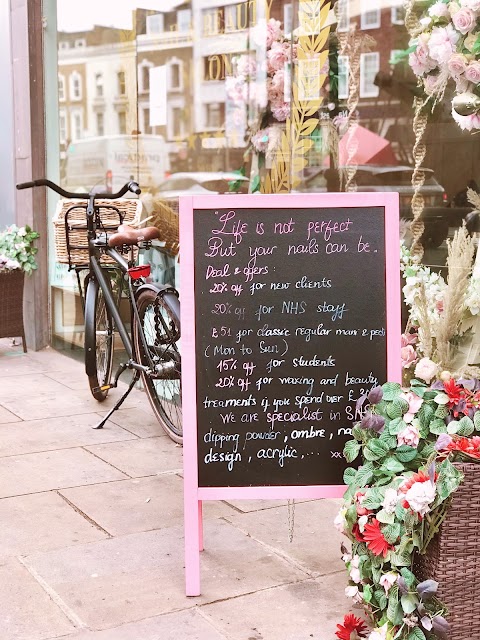 "Life is not perfect
But your nails can be..
Deal & offers :
20% off for new clients
20% off for NHS staff
£51 for classic regular mani & pedi
(Mon to Sun)
15% off for students
20% off for waxing and beauty
treatments if you spend over £
We are specialist in SNS
dipping powder, ombre,
design, acrylic,... xx
BEAU